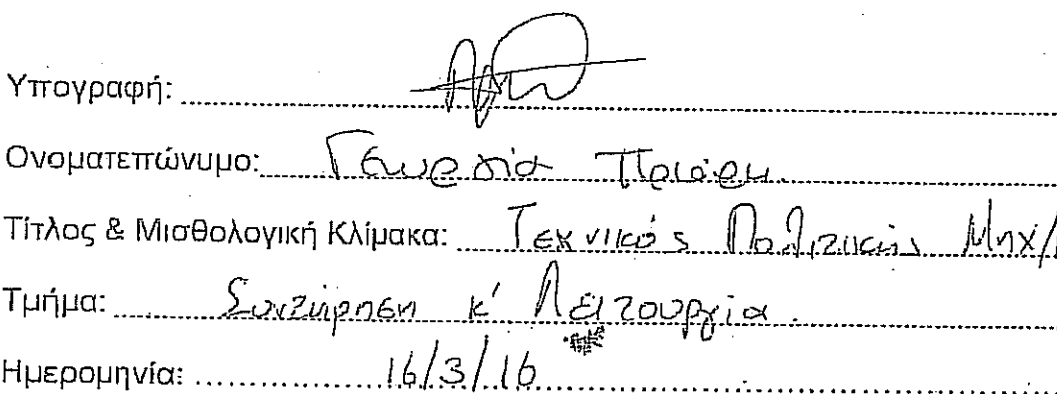 Υπογραφή:
Ονοματεπώνυμο: Γεωργία
Τίτλος & Μισθολογική Κλίμακα: Τεχνικός Πολιτικής Μηχ/
Τμήμα: Συντήρηση κ' Λειτουργία.
Ημερομηνία: 16/3/16